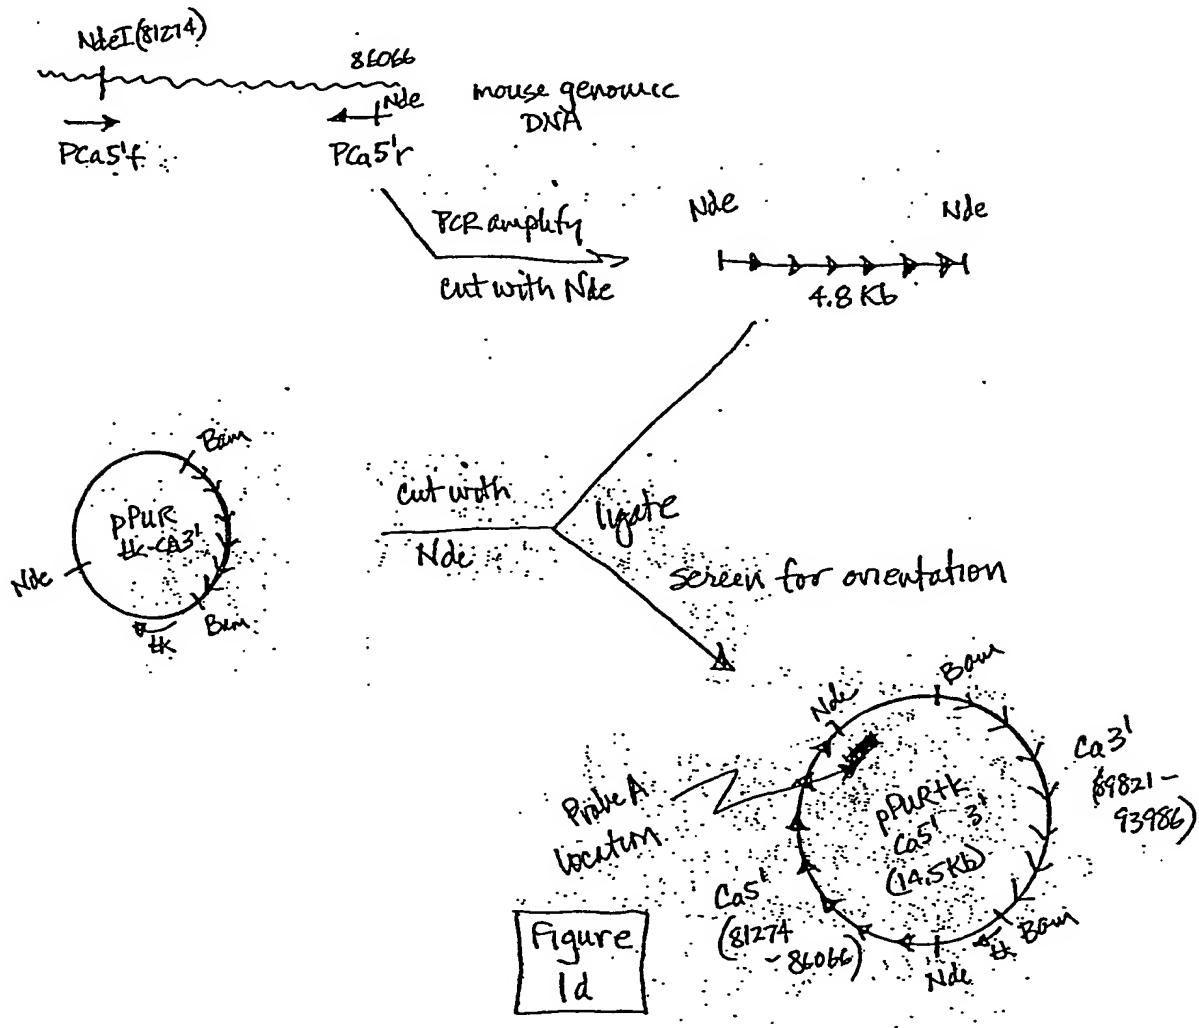 NdeI (81274)
86066
Nde
mouse genomic
DNA
PCa5'f
PCa5'r
PCR amplify
cut with Nde
Nde
Nde
4.8 Kb
Bam
pPUR
tk-CA3'
Nde
Bam
tk
cut with
Nde
ligate
screen for orientation
Bam
Nde
Ca3'
(89821 -
93986)
Probe A
location
pPURtk
Ca5' 3'
(14.5Kb)
Ca5'
(81274
- 86066)
Bam
tk
Nde
Figure
1d